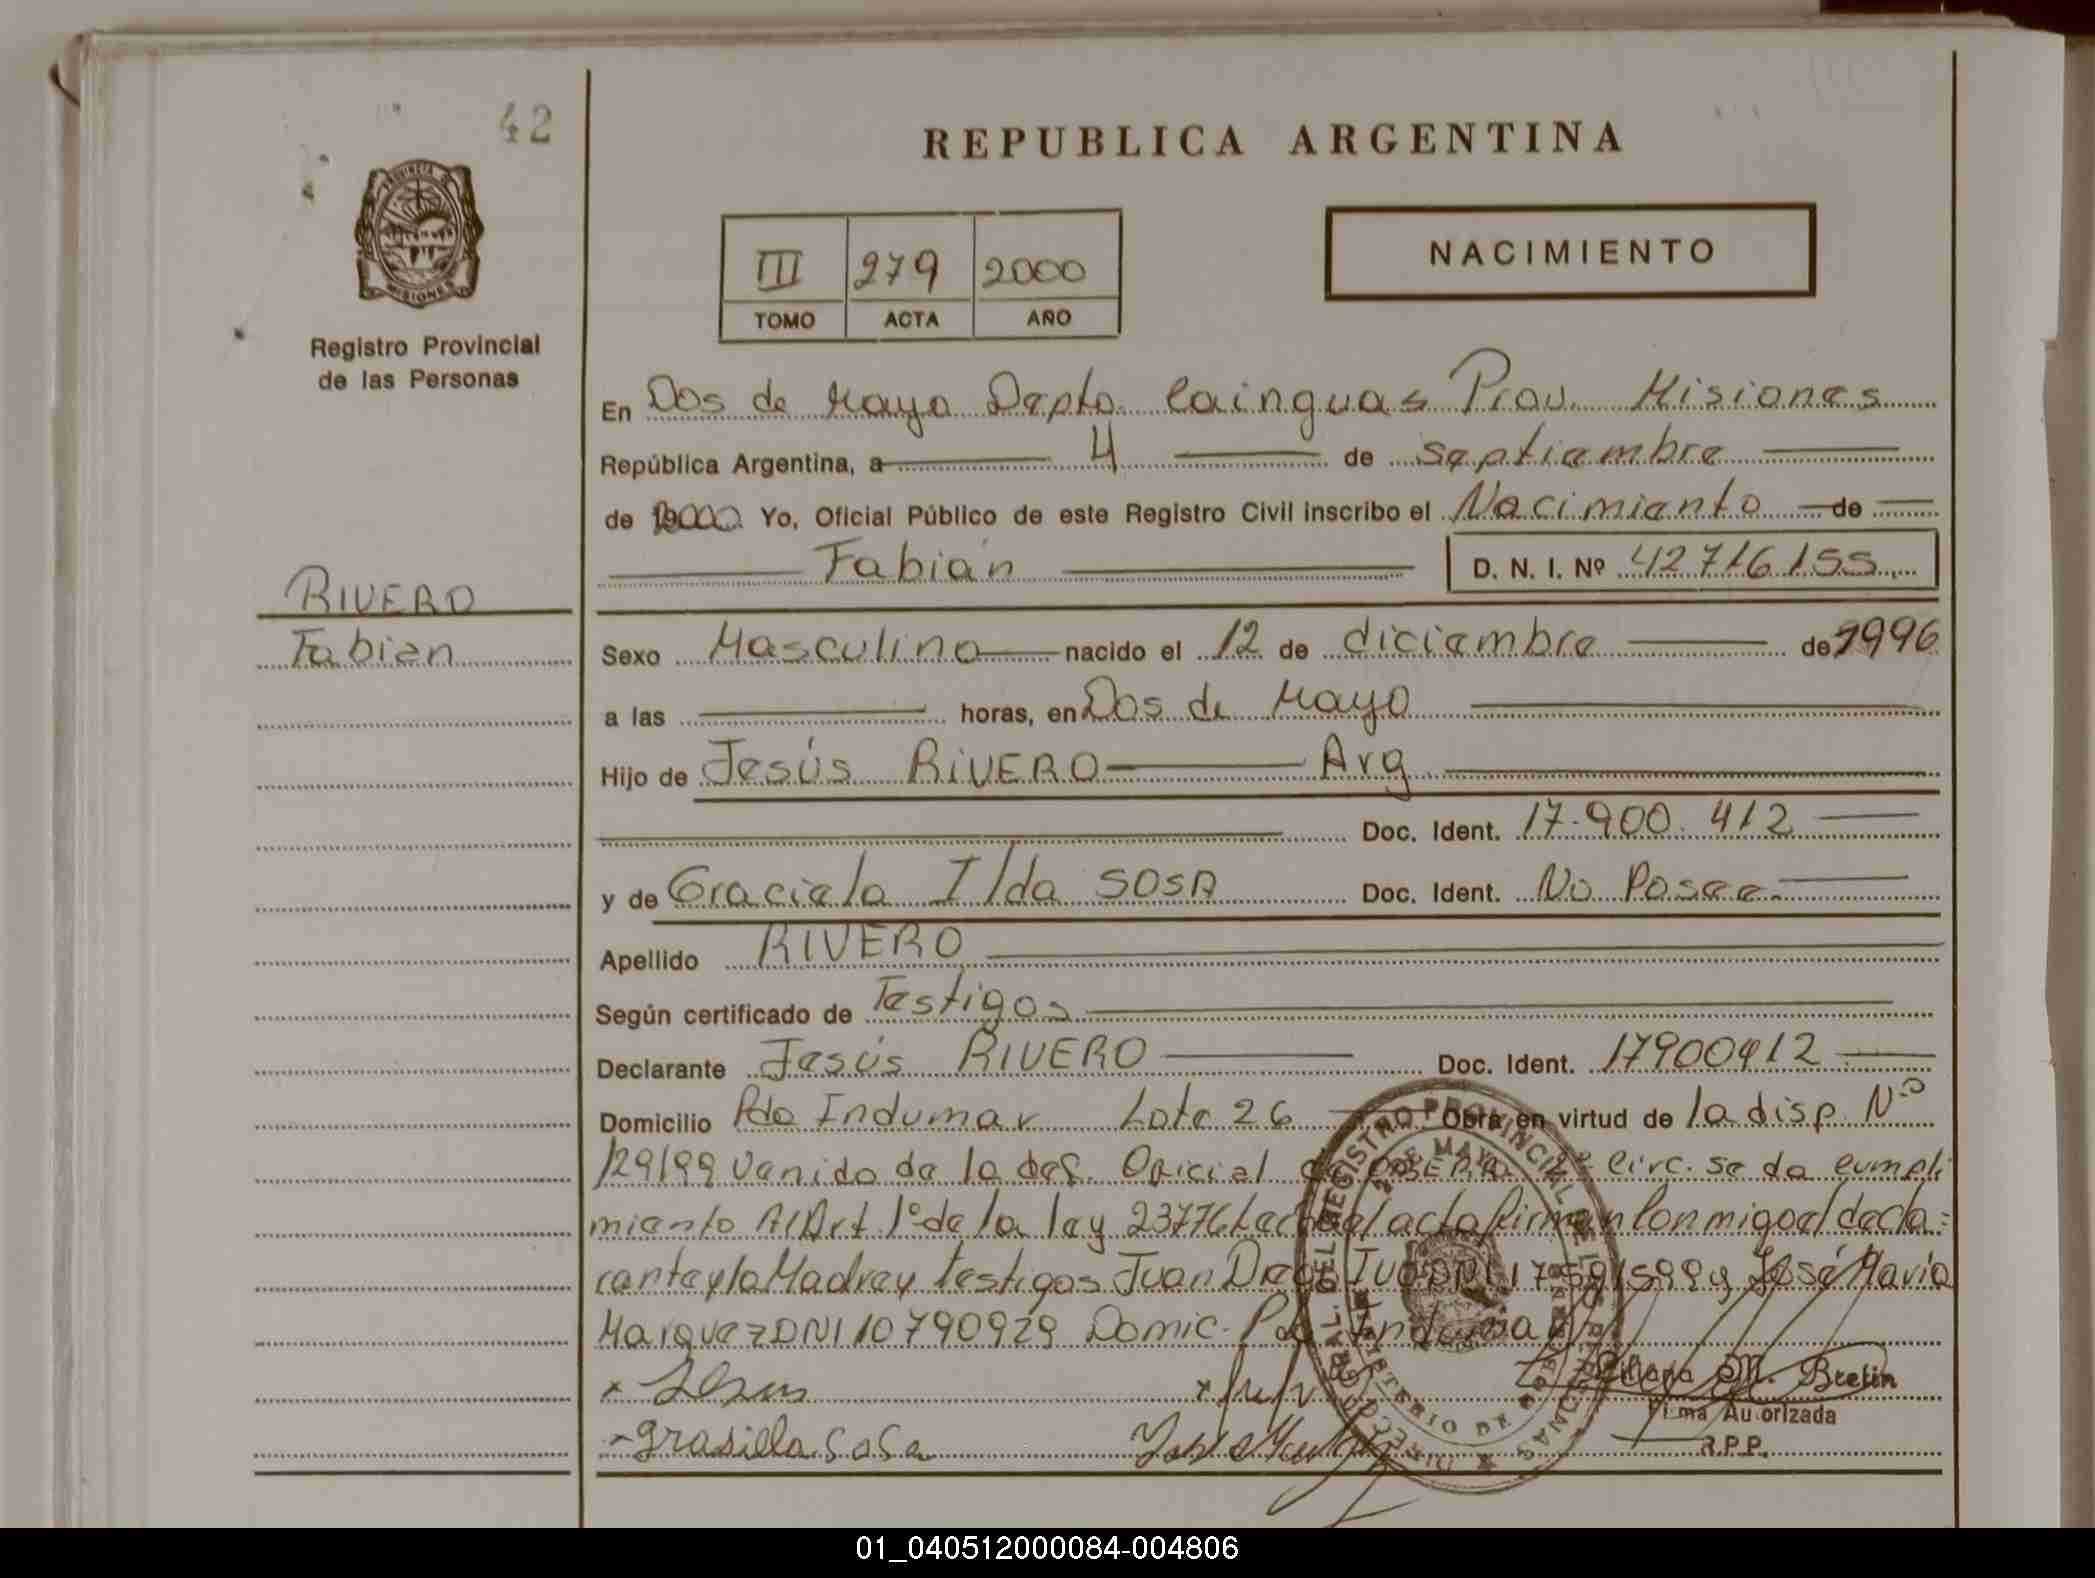 42
REPUBLICA ARGENTINA
PROVINCIA DE
MISIONES
Registro Provincial
de las Personas
NACIMIENTO
III 279 2000
TOMO ACTA AÑO
En Dos de Mayo Depto. Cainguas Prov. Misiones
República Argentina, a 4 de septiembre
de 2000 Yo, Oficial Público de este Registro Civil inscribo el Nacimiento de
Fabián D. N. I. Nº 42716155
RIVERO
Fabian
Sexo Masculino nacido el 12 de diciembre de 1996
a las horas, en Dos de Mayo
Hijo de Jesús RIVERO Arg
Doc. Ident. 17.900.412
y de Graciela Ilda SOSA Doc. Ident. No Posee.
Apellido RIVERO
Según certificado de Testigos
Declarante Jesús RIVERO Doc. Ident. 17900412
Domicilio Pdo Indumar Lote 26 Obra en virtud de la disp. Nº
129/99 venido de la def. Oficial de OBERA 2º Circ. se da cumpli
miento Al Art. 1º de la ley 23776 firman Conmigo el decla=
rante y la Madre y testigos Juan José María
Marquez DNI 10790929 Domic. Pdo Indumar
x Jesus
M. Bretin
Firma Autorizada
R.P.P.
- grasiella SoSa
REGISTRO PROVINCIAL DE LAS PERSONAS
2 DE MAYO
01_040512000084-004806